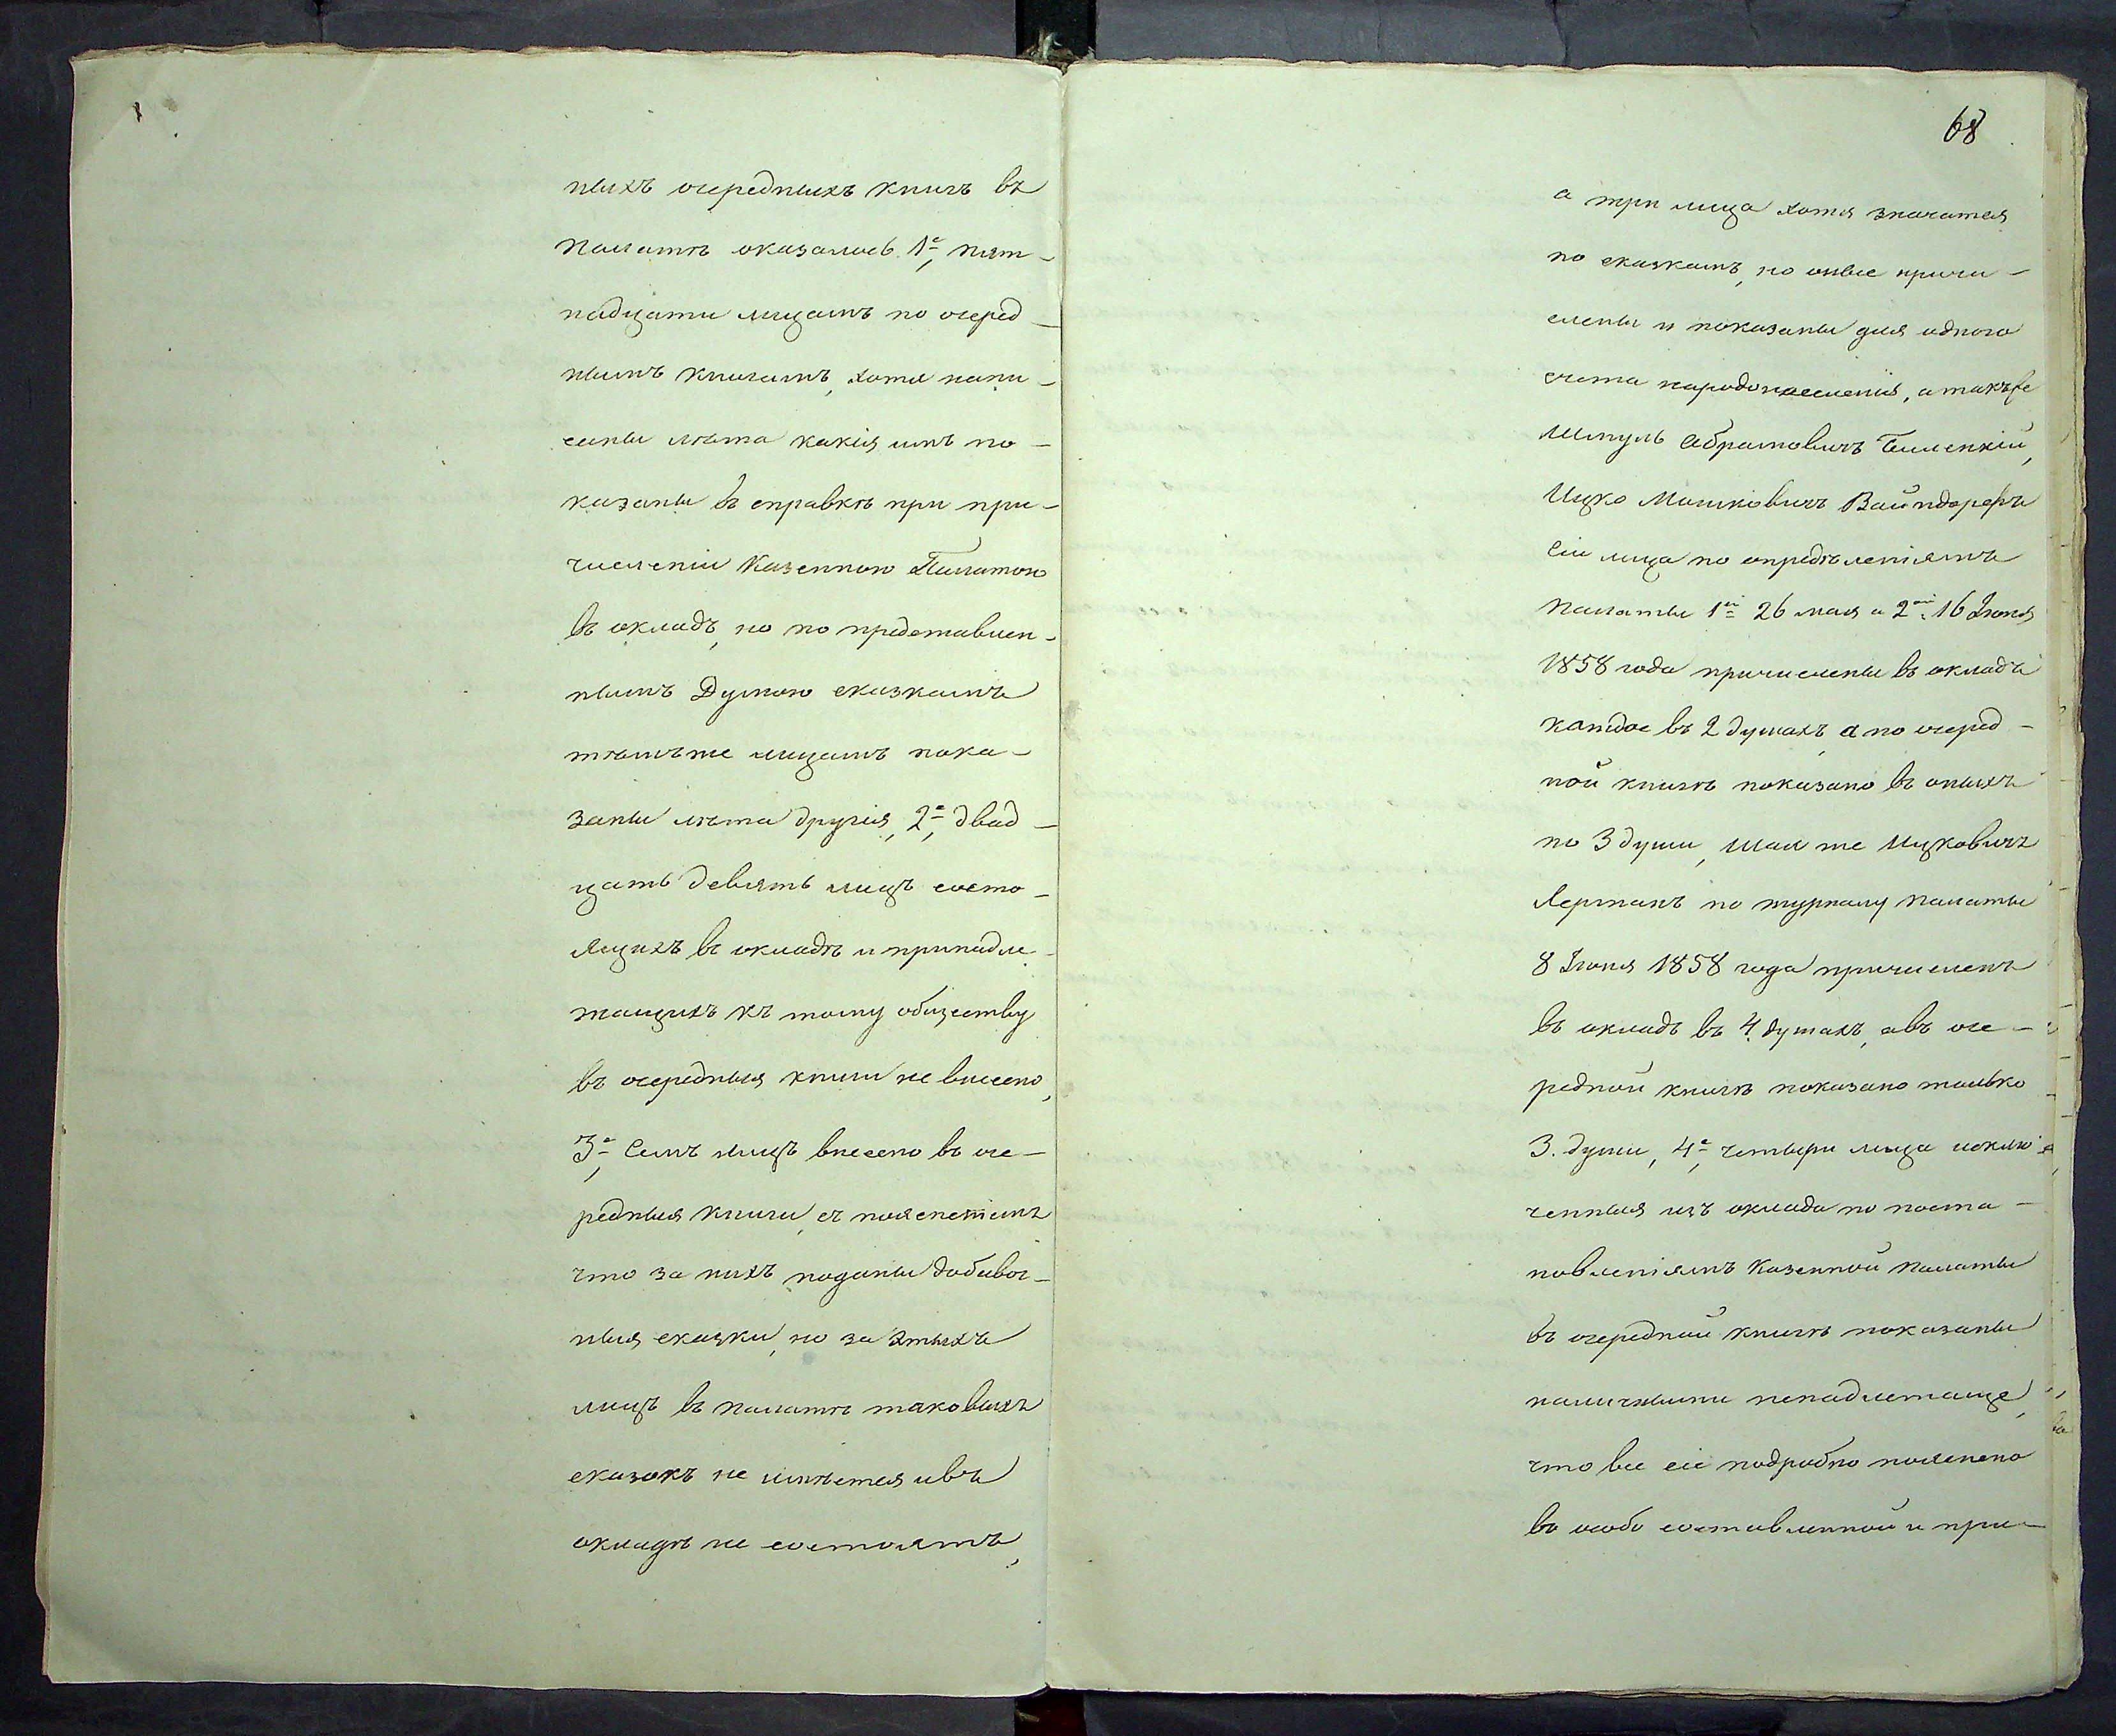 ныхъ очередныхъ книгъ въ
Палатѣ оказалось 1е, пят-
надцати лицамъ по очеред-
нымъ книгамъ, хотя напи-
саны лѣта какія имъ по-
казаны въ справкѣ при при-
численіи Казенною Палатою
въ окладъ, но по представлен-
нымъ Думою сказкамъ
тѣмъ же лицамъ пока-
заны лѣта другія, 2е, двад-
цать девять лицъ состо-
ящихъ въ окладѣ и принадле-
жащихъ къ тому обществу
въ очередныя книги не внесено,
3е, Семь лицъ внесено въ оче-
редныя книги, съ поясненіемъ
что за нихъ поданы добавоч-
ныя сказки, но за этихъ
лицъ въ палатѣ таковыхъ
сказокъ не имѣется и въ
окладѣ не состоятъ,
68
а три лица хотя значатся
по сказкамъ, но оные причи-
слены и показаны для одного
счета народонаселенія, а также
Шмуль Абрамовичъ
Ицко Мошковичъ Вайндорфъ
сіи лица по опредѣленіямъ
палаты 1й 26 мая и 2ой 16 Іюня
1858 года причислены въ окладъ
каждое въ 2 душахъ, а по очеред-
ной книгѣ показано въ оныхъ
по 3 души, же Ицковичъ
Лерманъ по журналу палаты
8 Іюня 1858 года причисленъ
въ окладъ въ 4 душахъ, а въ оче-
редной книгѣ показано только
3. души, 4е, четыри лица исклю-
ченныя изъ оклада по поста-
новленіямъ Казенной палаты
въ очередной книгѣ показаны
наличными ненадлежаще,
что все сіе подробно пояснено
въ особо составленной и при-